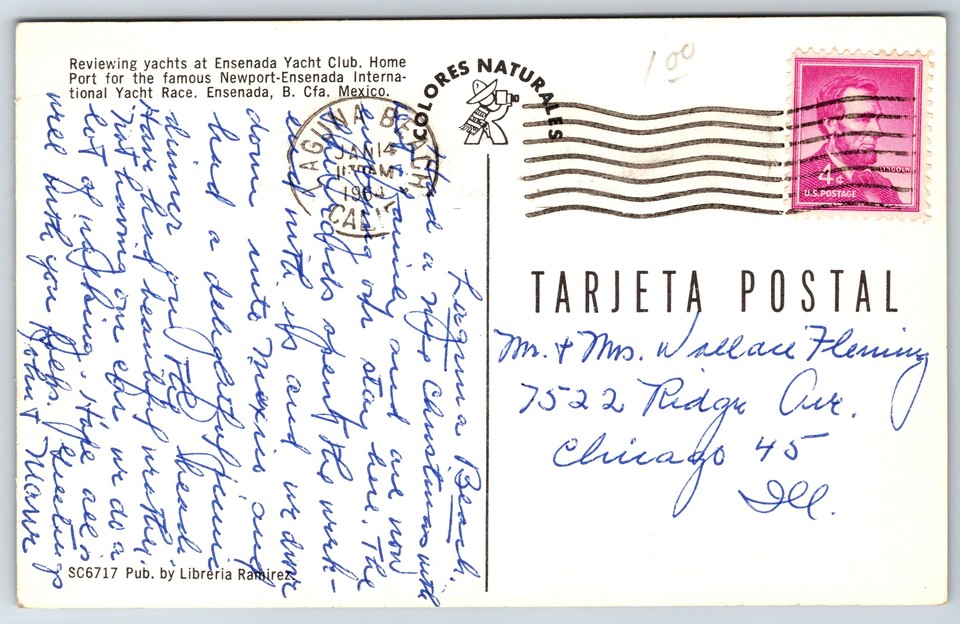 Reviewing yachts at Ensenada Yacht Club. Home
Port for the famous Newport-Ensenada Interna-
tional Yacht Race. Ensenada, B. Cfa. Mexico.
COLORES NATURALES
1.00
LAGUNA BEACH
JAN 14
AM
CALIF
LINCOLN
4¢
U.S. POSTAGE
TARJETA POSTAL
Mr. & Mrs. Wallace Fleming
7522 Ridge Ave.
Chicago 45
Ill.
Laguna Beach.
Had a nice Christmas with
family and are now
enjoying our stay here. The
spent the week-
end with us and we drove
down into Mexico and
had a delightful picnic
dinner on the beach.
Have had beautiful weather.
Not having our car we do a
lot of walking. Hope all is
well with you folks. Greetings
John &
SC6717 Pub. by Libreria Ramirez